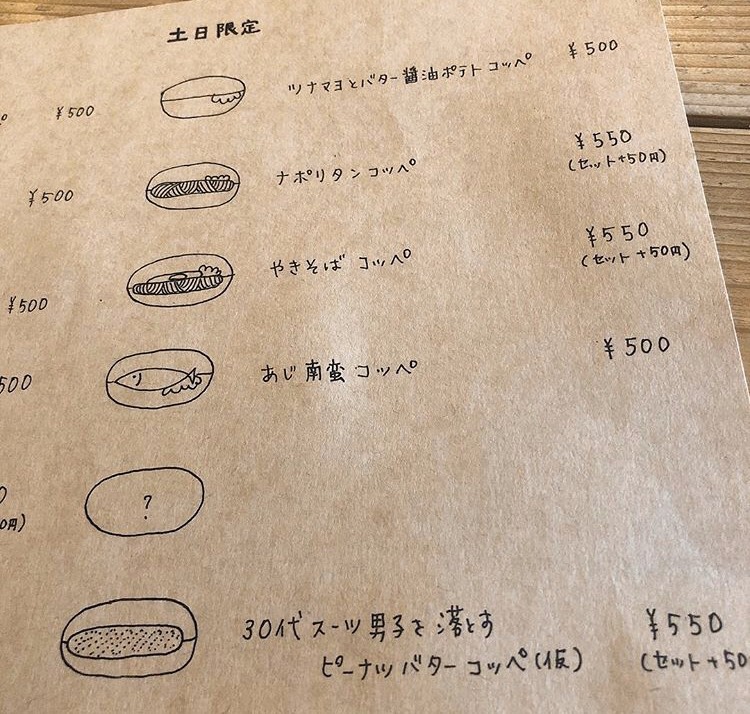 土日限定
ツナマヨとバター醤油ポテトコッペ ¥500
ナポリタンコッペ ¥550
(セット+50円)
やきそば コッペ ¥550
(セット+50円)
あじ南蛮コッペ ¥500
?
30代スーツ男子を落とす
ピーナツバターコッペ(仮) ¥550
(セット+50
¥500
¥500
¥500
500
0円)